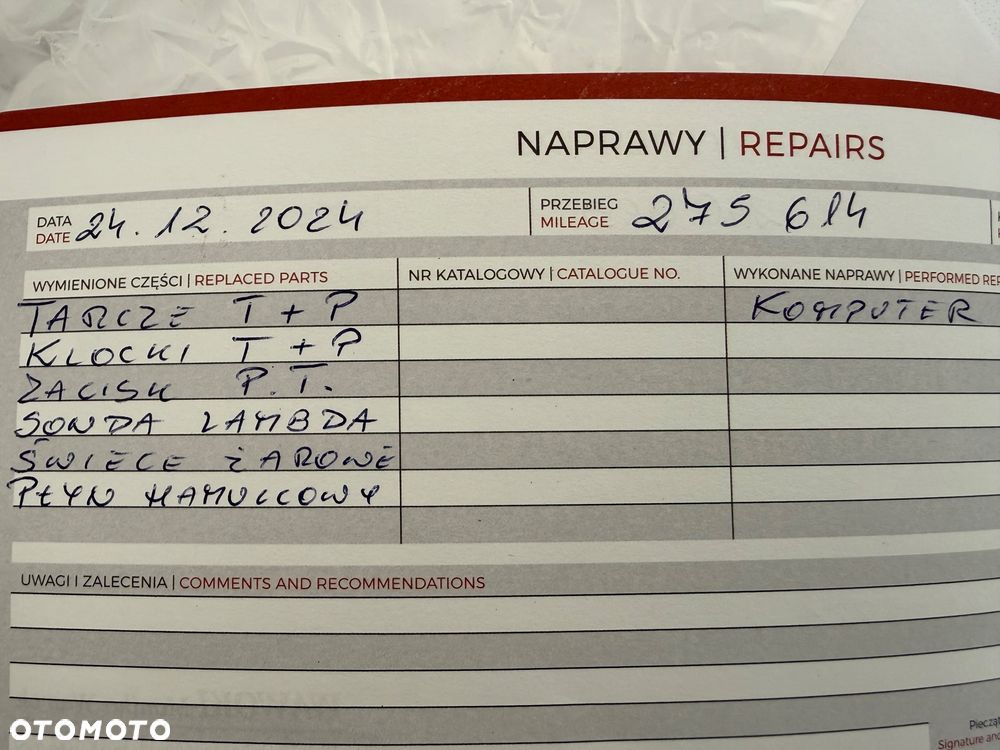 NAPRAWY | REPAIRS
DATA 24.12.2024 PRZEBIEG 275 614
DATE MILEAGE
WYMIENIONE CZĘŚCI | REPLACED PARTS NR KATALOGOWY | CATALOGUE NO. WYKONANE NAPRAWY | PERFORMED REP
TARCZE T + P KOMPUTER
KLOCKI T + P
ZACISK P.T.
SONDA LAMBDA
ŚWIECE ŻAROWE
PŁYN HAMULCOWY
UWAGI I ZALECENIA | COMMENTS AND RECOMMENDATIONS
Pieczą
Signature and
OTOMOTO